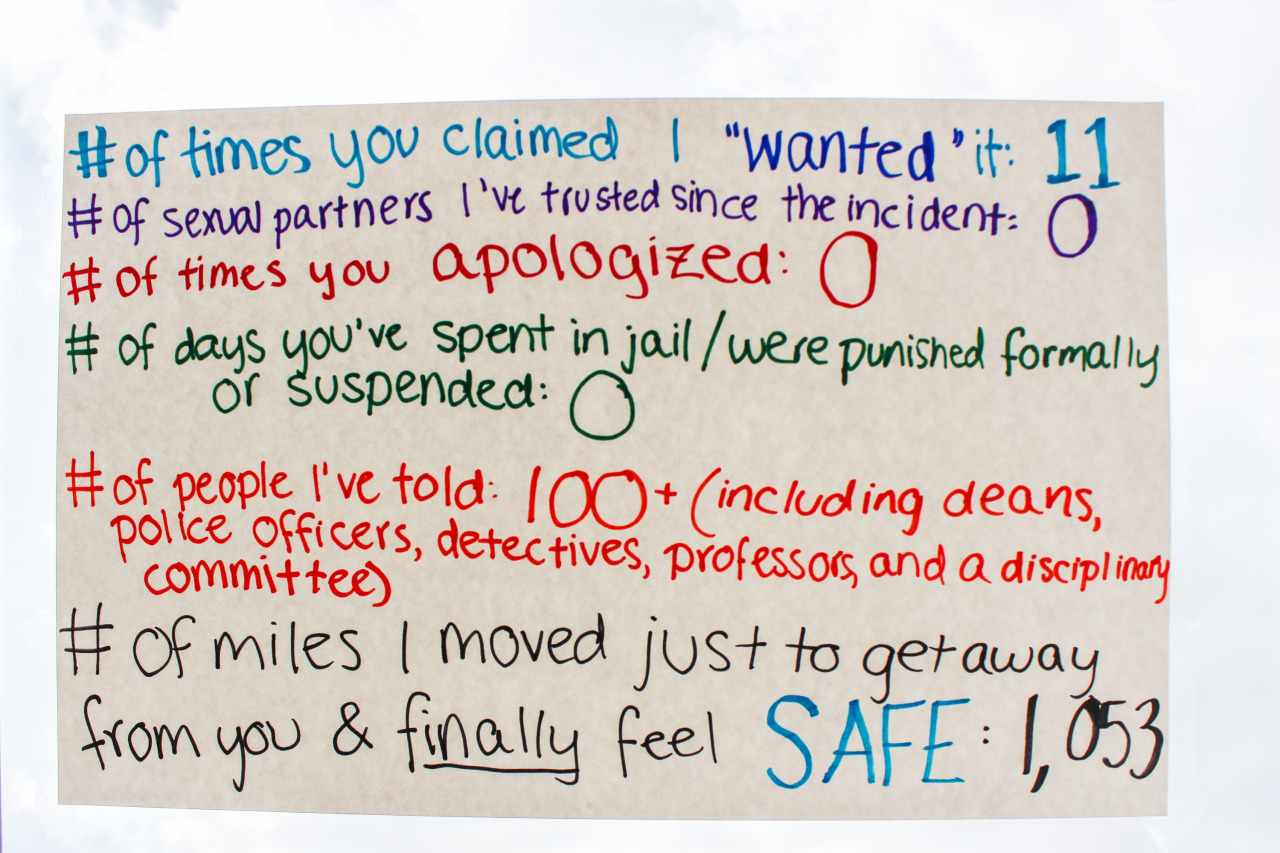 # of times you claimed I "wanted" it: 11
# of sexual partners I've trusted since the incident: 0
# of times you apologized: 0
# of days you've spent in jail/were punished formally
or suspended: 0
# of people I've told: 100+ (including deans,
police officers, detectives, professors, and a disciplinary
committee)
# of miles I moved just to get away
from you & finally feel SAFE: 1,053